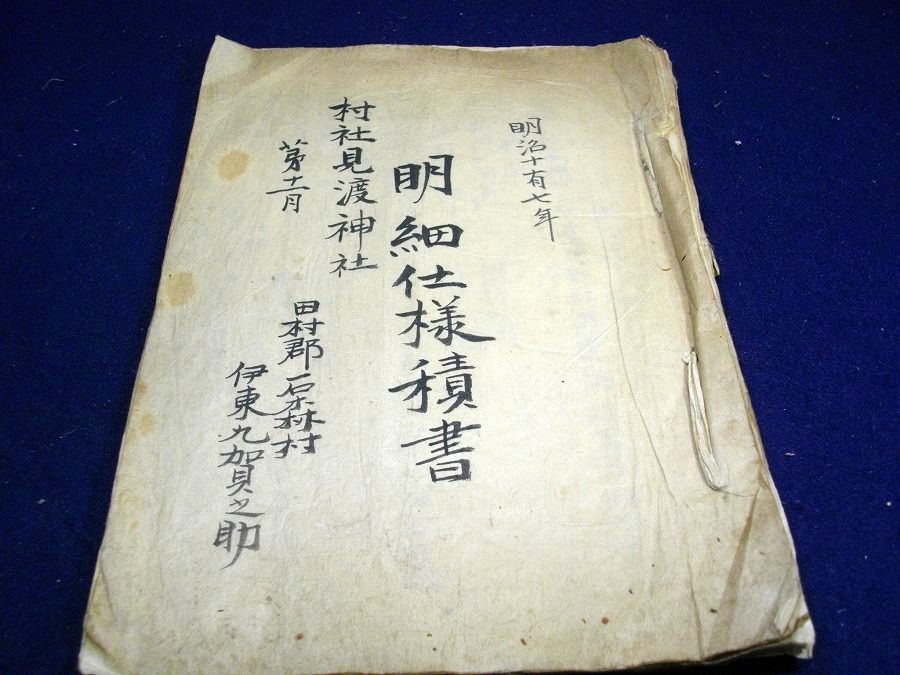 明治十有七年
明細仕様積書
村社見渡神社
第十一月
田村郡
伊東九賀之助